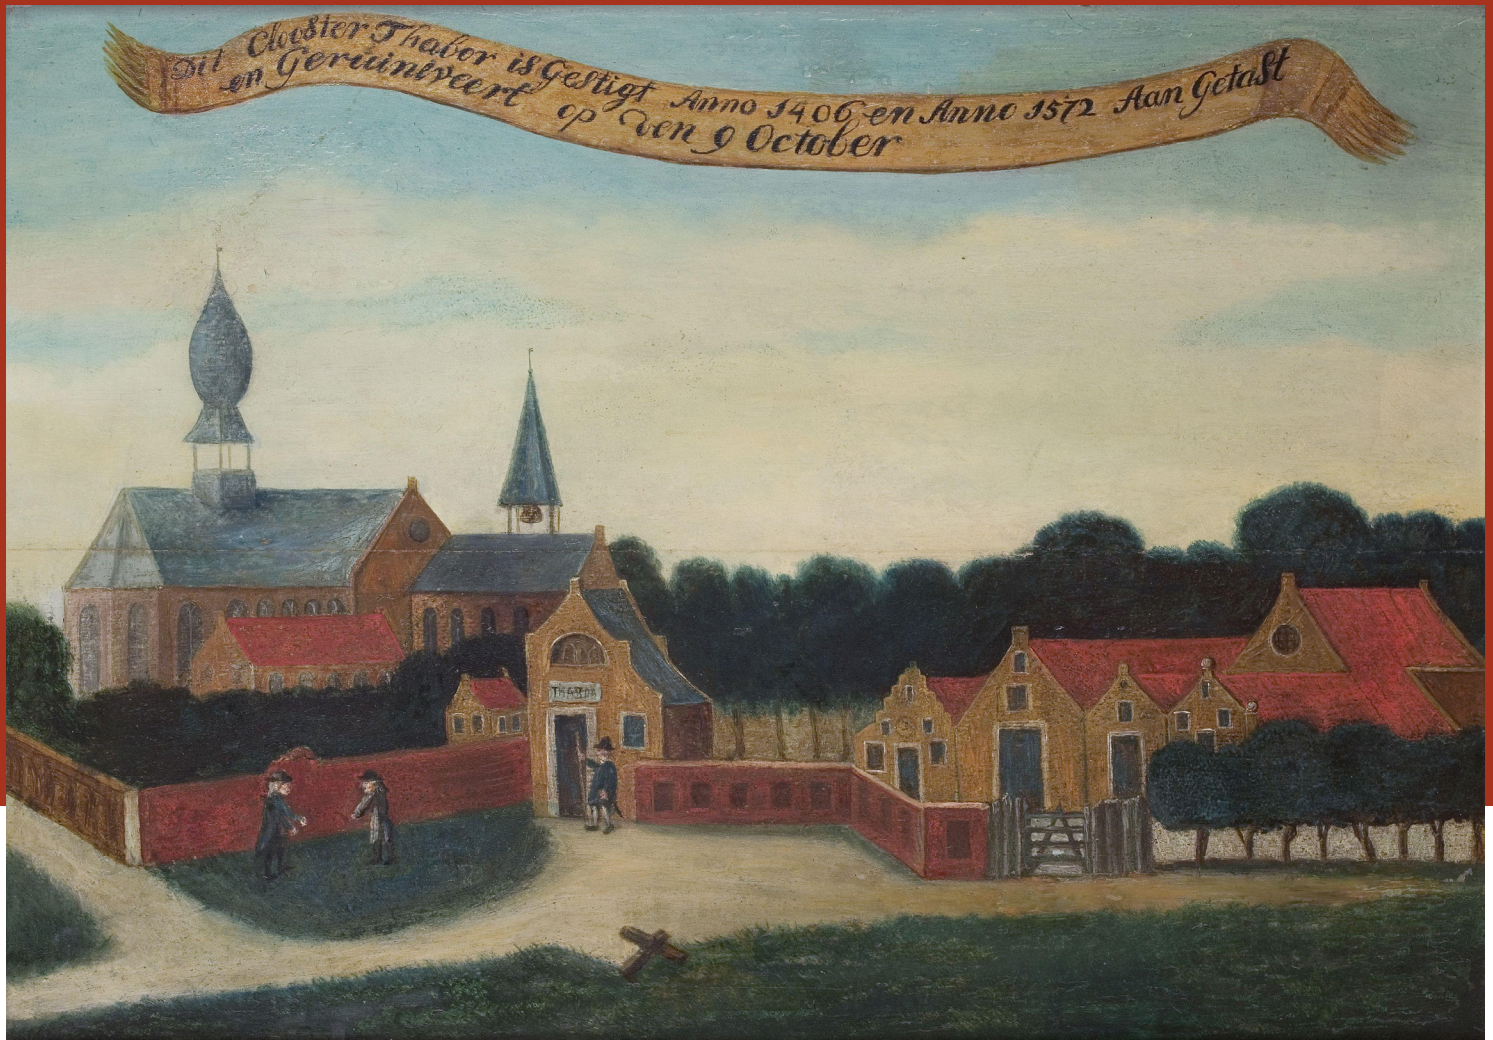 Dit Clooster Thabor is Gestigt Anno 1406 en Anno 1572 Aan Getast
en Geruineveert op den 9 October
THABOR